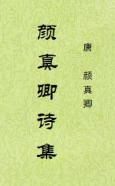 颜真卿诗集
唐 颜真卿